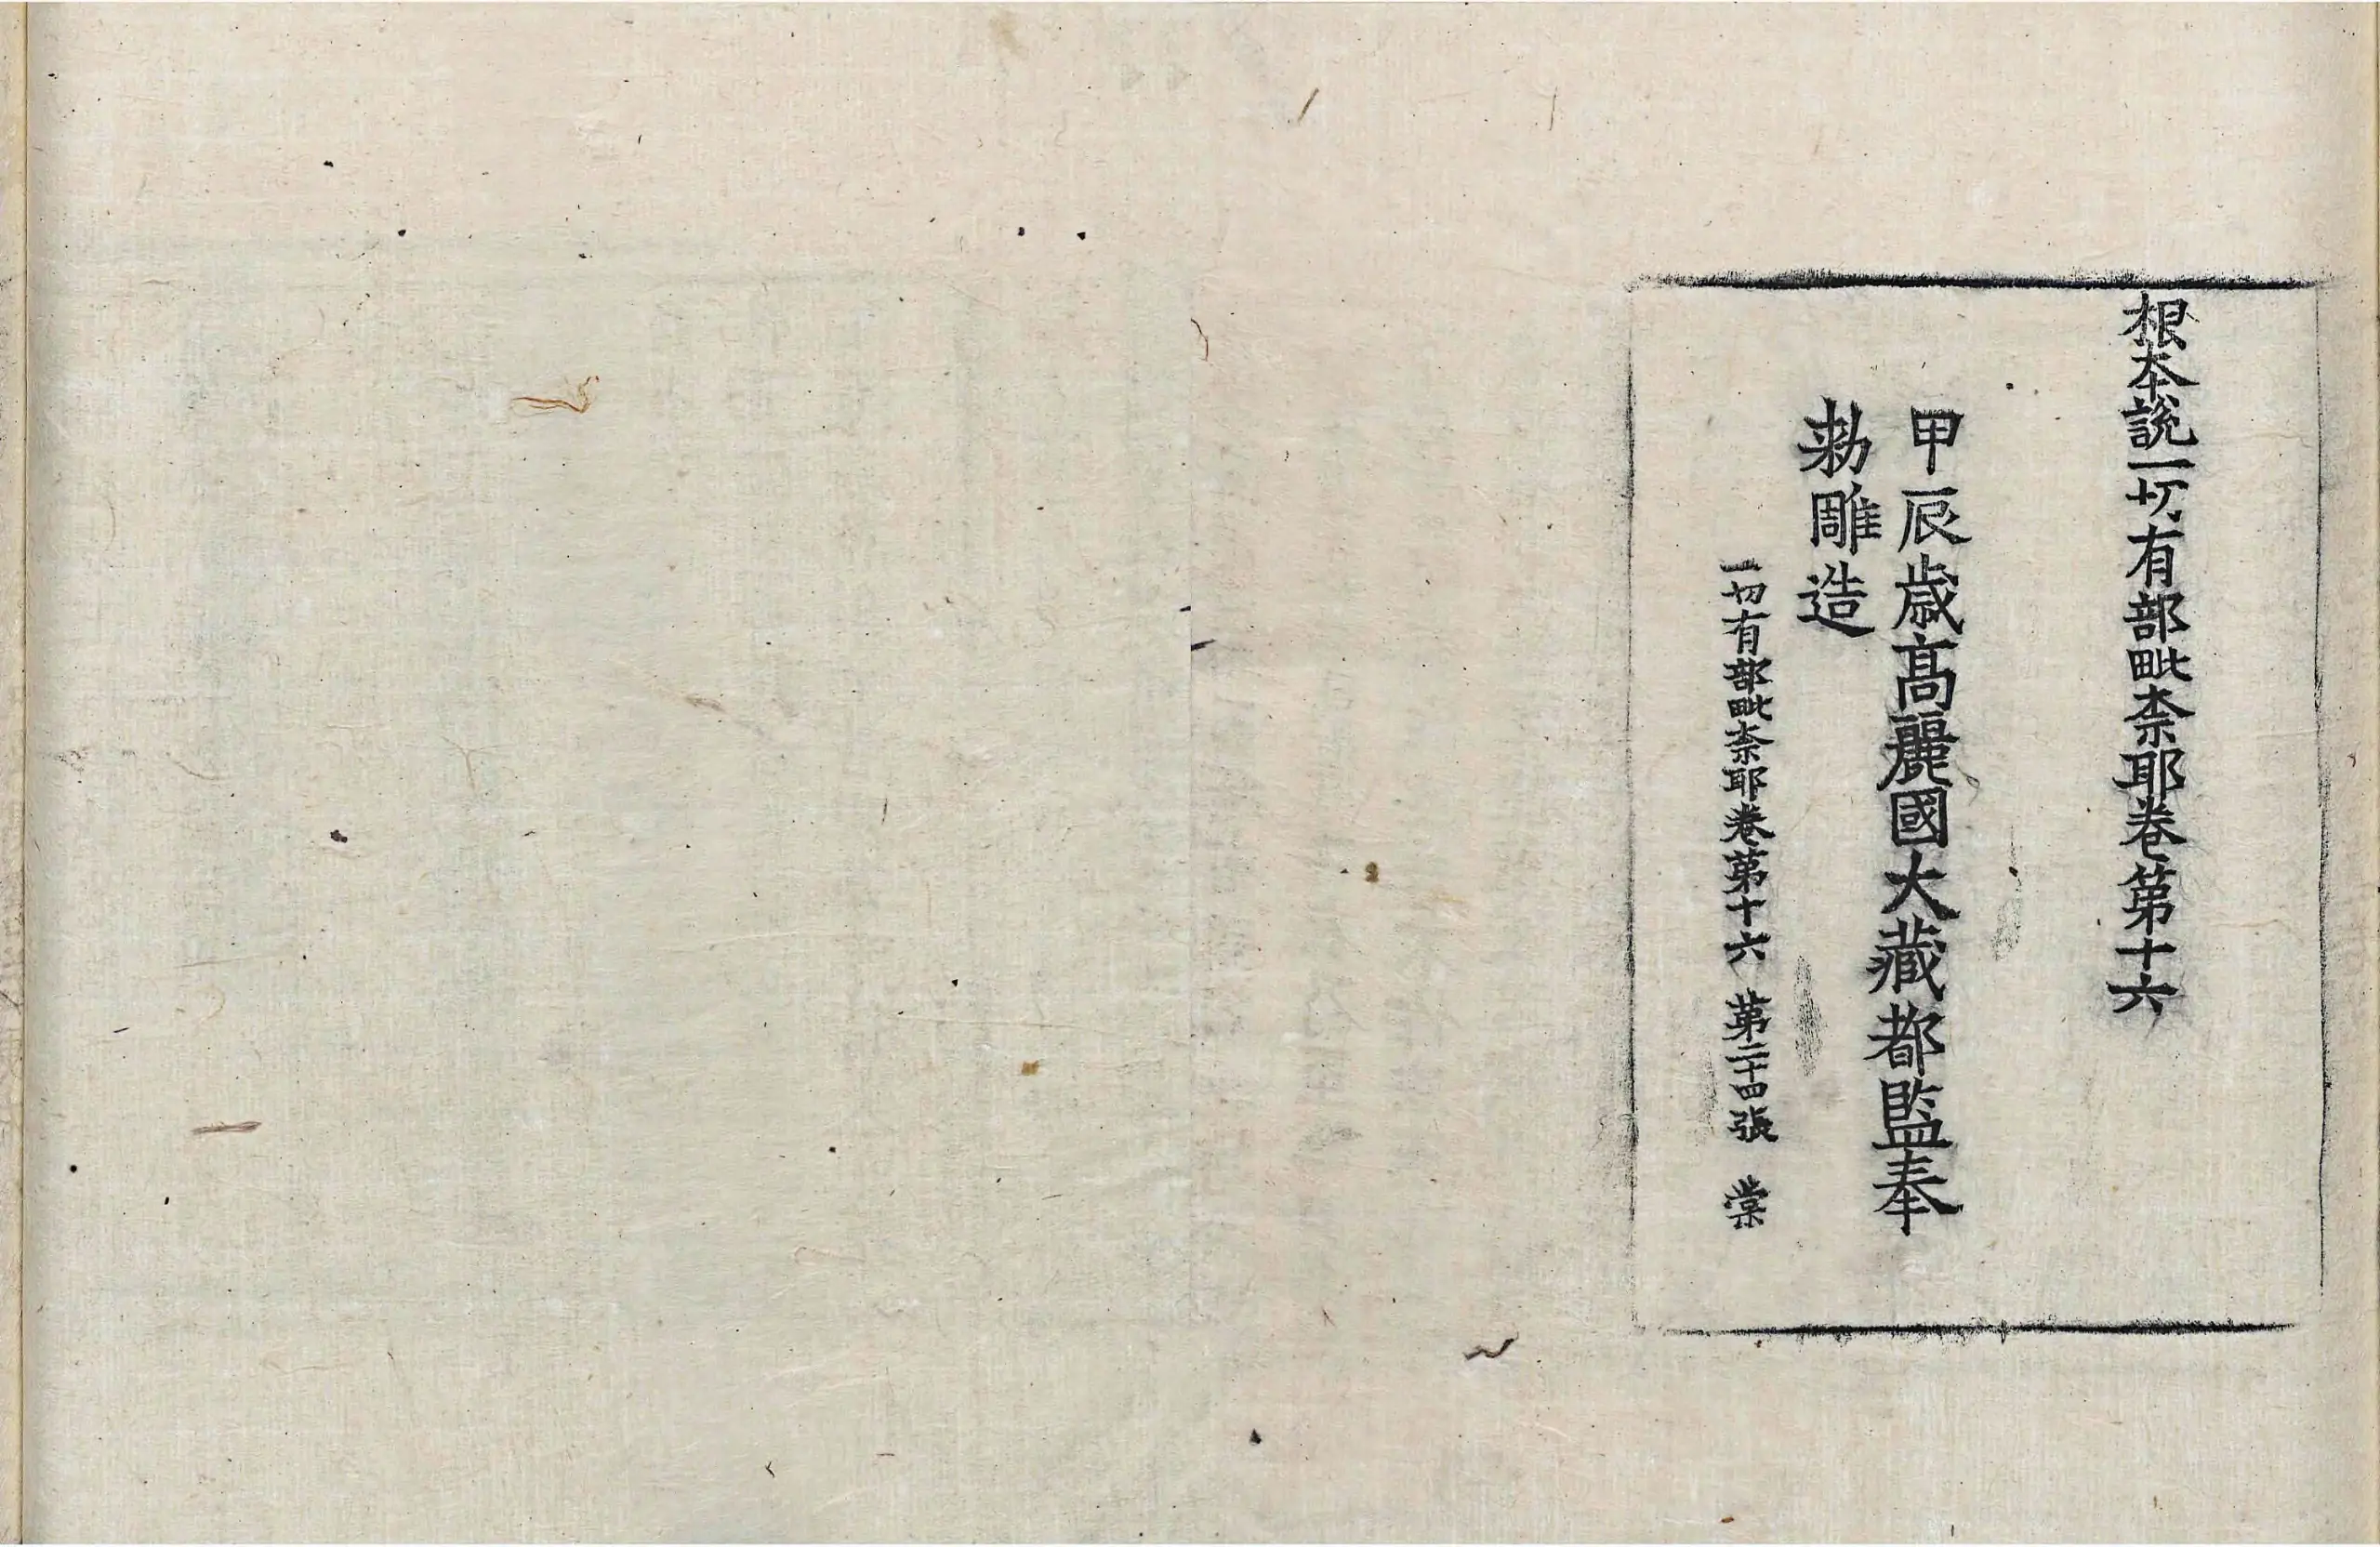 根本說一切有部毗柰耶卷第十六
甲辰歲高麗國大藏都監奉
勑雕造
一切有部毗柰耶卷第十六 第二十四張 棠